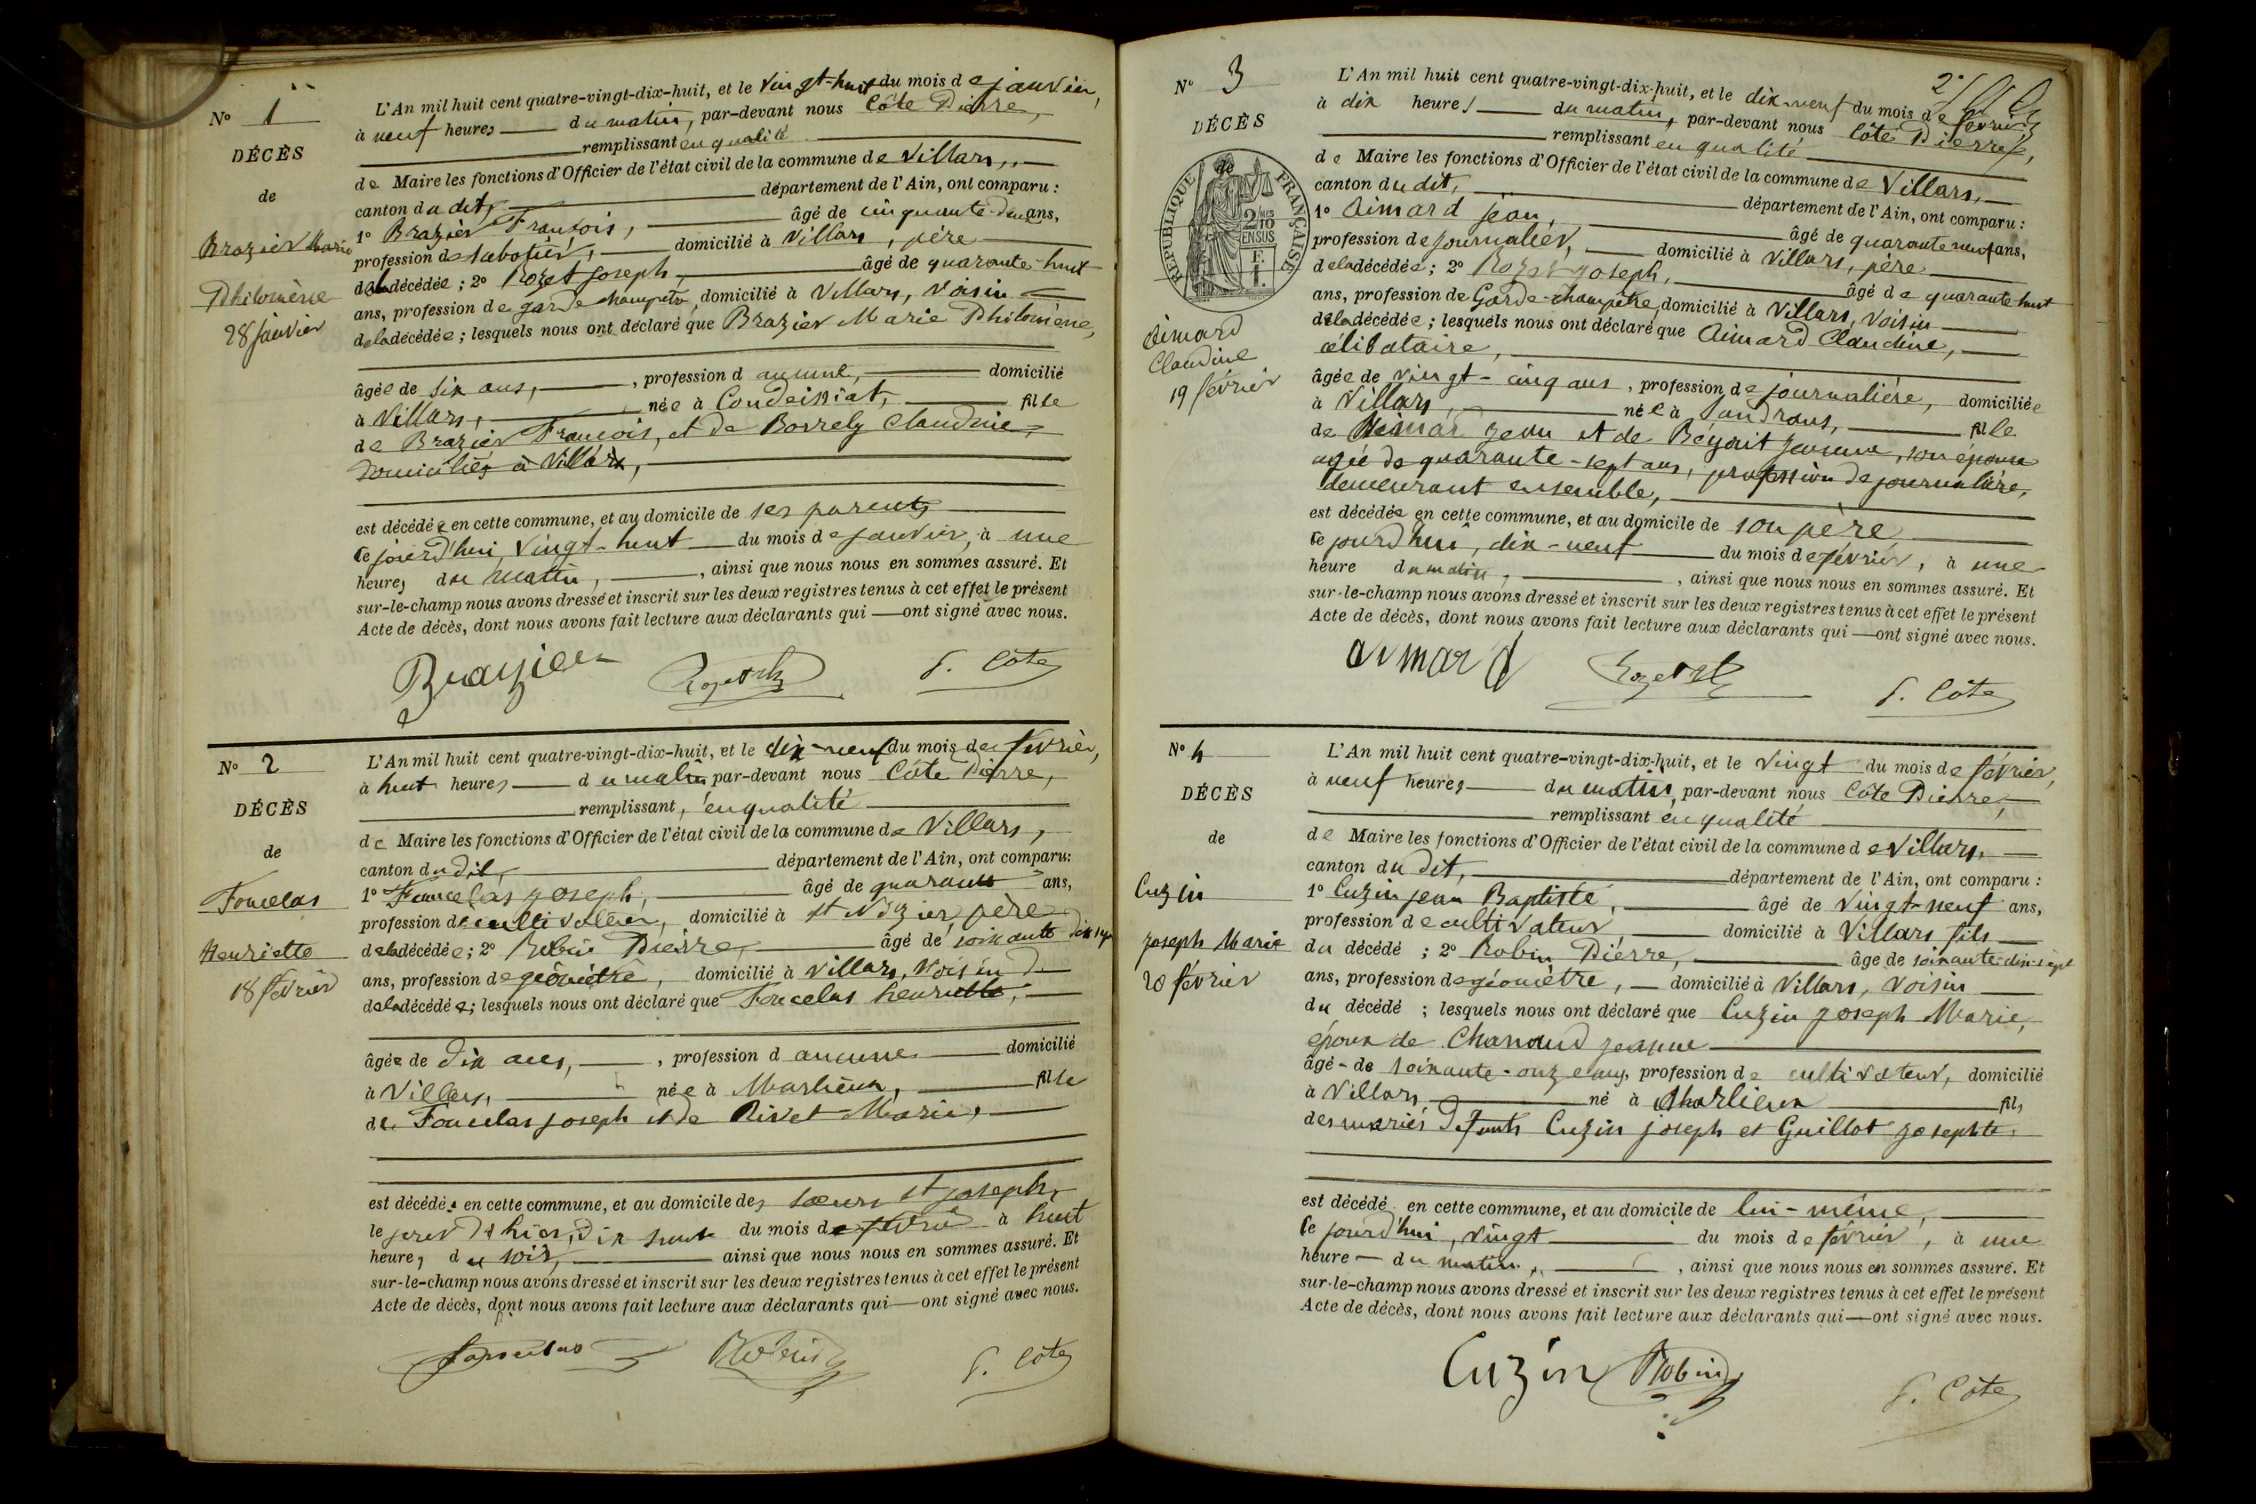 N° 1
DÉCÈS
de
Brazier Marie
Philomène
28 janvier
L'An mil huit cent quatre-vingt-dix-huit, et le vingt-huit du mois de janvier,
à neuf heures du matin, par-devant nous Côte Pierre,
remplissant en qualité
de Maire les fonctions d'Officier de l'état civil de la commune de Villars,
canton du dit, département de l'Ain, ont comparu :
1° Brazier François, âgé de cinquante-deux ans,
profession de sabotier, domicilié à Villars, père
de la décédée ; 2° Rozet Joseph, âgé de quarante-huit
ans, profession de garde champêtre, domicilié à Villars, voisin
de la décédée ; lesquels nous ont déclaré que Brazier Marie Philomène,
âgée de six ans, , profession d aucune, domicilié
à Villars, née à Condeissiat, fille
de Brazier François, et de Borrely Claudine,
domiciliés à Villars,
est décédée en cette commune, et au domicile de ses parents
ce jourd'hui vingt-huit du mois de janvier, à une
heures du matin, , ainsi que nous nous en sommes assuré. Et
sur-le-champ nous avons dressé et inscrit sur les deux registres tenus à cet effet le présent
Acte de décès, dont nous avons fait lecture aux déclarants qui — ont signé avec nous.
Brazier Rozet P. Côte
N° 2
DÉCÈS
de
Foucelas
Henriette
18 février
L'An mil huit cent quatre-vingt-dix-huit, et le dix-neuf du mois de février,
à huit heures du matin par-devant nous Côte Pierre,
remplissant, en qualité
de Maire les fonctions d'Officier de l'état civil de la commune de Villars,
canton du dit, département de l'Ain, ont comparu:
1° Foucelas Joseph, âgé de quarante ans,
profession de cultivateur, domicilié à St Nizier père
de la décédée ; 2° Robin Pierre, âgé de soixante dix sept
ans, profession de géomètre, domicilié à Villars, voisin
de la décédée ; lesquels nous ont déclaré que Foucelas henriette,
âgée de dix ans, , profession d aucune domicilié
à Villars, née à Marlieux, fille
de Foucelas Joseph et de Rivet Marie,
est décédée en cette commune, et au domicile des sœurs St Joseph,
le jour d'hier, dix huit du mois de février à huit
heures du soir, ainsi que nous nous en sommes assuré. Et
sur-le-champ nous avons dressé et inscrit sur les deux registres tenus à cet effet le présent
Acte de décès, dont nous avons fait lecture aux déclarants qui — ont signé avec nous.
Foucelas Robin P. Côte
N° 3
DÉCÈS
de
RÉPUBLIQUE FRANÇAISE
2/10
EN SUS
Aimard
Claudine
19 février
L'An mil huit cent quatre-vingt-dix-huit, et le dix-neuf du mois de février,
à dix heures du matin, par-devant nous Côte Pierre,
remplissant en qualité
de Maire les fonctions d'Officier de l'état civil de la commune de Villars,
canton du dit, département de l'Ain, ont comparu :
1° Aimard Jean, âgé de quarante neuf ans,
profession de journalier, domicilié à Villars, père
de la décédée ; 2° Rozet Joseph, âgé de quarante huit
ans, profession de Garde-champêtre, domicilié à Villars, voisin
de la décédée ; lesquels nous ont déclaré que Aimard Claudine,
célibataire,
âgée de vingt-cinq ans, profession de journalière, domiciliée
à Villars, née à Sandrans, fille
de Aimar Jean et de Jeanne, son épouse
agée de quarante-sept ans, profession de journalière,
demeurant ensemble,
est décédée en cette commune, et au domicile de son père
ce jourd'hui, dix-neuf du mois de février, à une
heure du matin, , ainsi que nous nous en sommes assuré. Et
sur-le-champ nous avons dressé et inscrit sur les deux registres tenus à cet effet le présent
Acte de décès, dont nous avons fait lecture aux déclarants qui — ont signé avec nous.
aimard Rozet P. Côte
N° 4
DÉCÈS
de
Cuzin
Joseph Marie
20 février
L'An mil huit cent quatre-vingt-dix-huit, et le vingt du mois de février,
à neuf heures du matin, par-devant nous Côte Pierre,
remplissant en qualité
de Maire les fonctions d'Officier de l'état civil de la commune de Villars,
canton du dit, département de l'Ain, ont comparu :
1° Cuzin Jean Baptiste, âgé de vingt-neuf ans,
profession de cultivateur, domicilié à Villars fils
du décédé ; 2° Robin Pierre, âgé de soixante-dix-sept
ans, profession de géomètre, domicilié à Villars, voisin
du décédé ; lesquels nous ont déclaré que Cuzin Joseph Marie,
époux de Chanaud Jeanne
âgé de soixante-onze ans, profession de cultivateur, domicilié
à Villars né à Marlieux fils
des mariés défunts Cuzin Joseph et Guillot Josephte,
est décédé en cette commune, et au domicile de lui-même,
ce jourd'hui, vingt du mois de février, à une
heure du matin, , ainsi que nous nous en sommes assuré. Et
sur-le-champ nous avons dressé et inscrit sur les deux registres tenus à cet effet le présent
Acte de décès, dont nous avons fait lecture aux déclarants qui — ont signé avec nous.
Cuzin Robin P. Côte